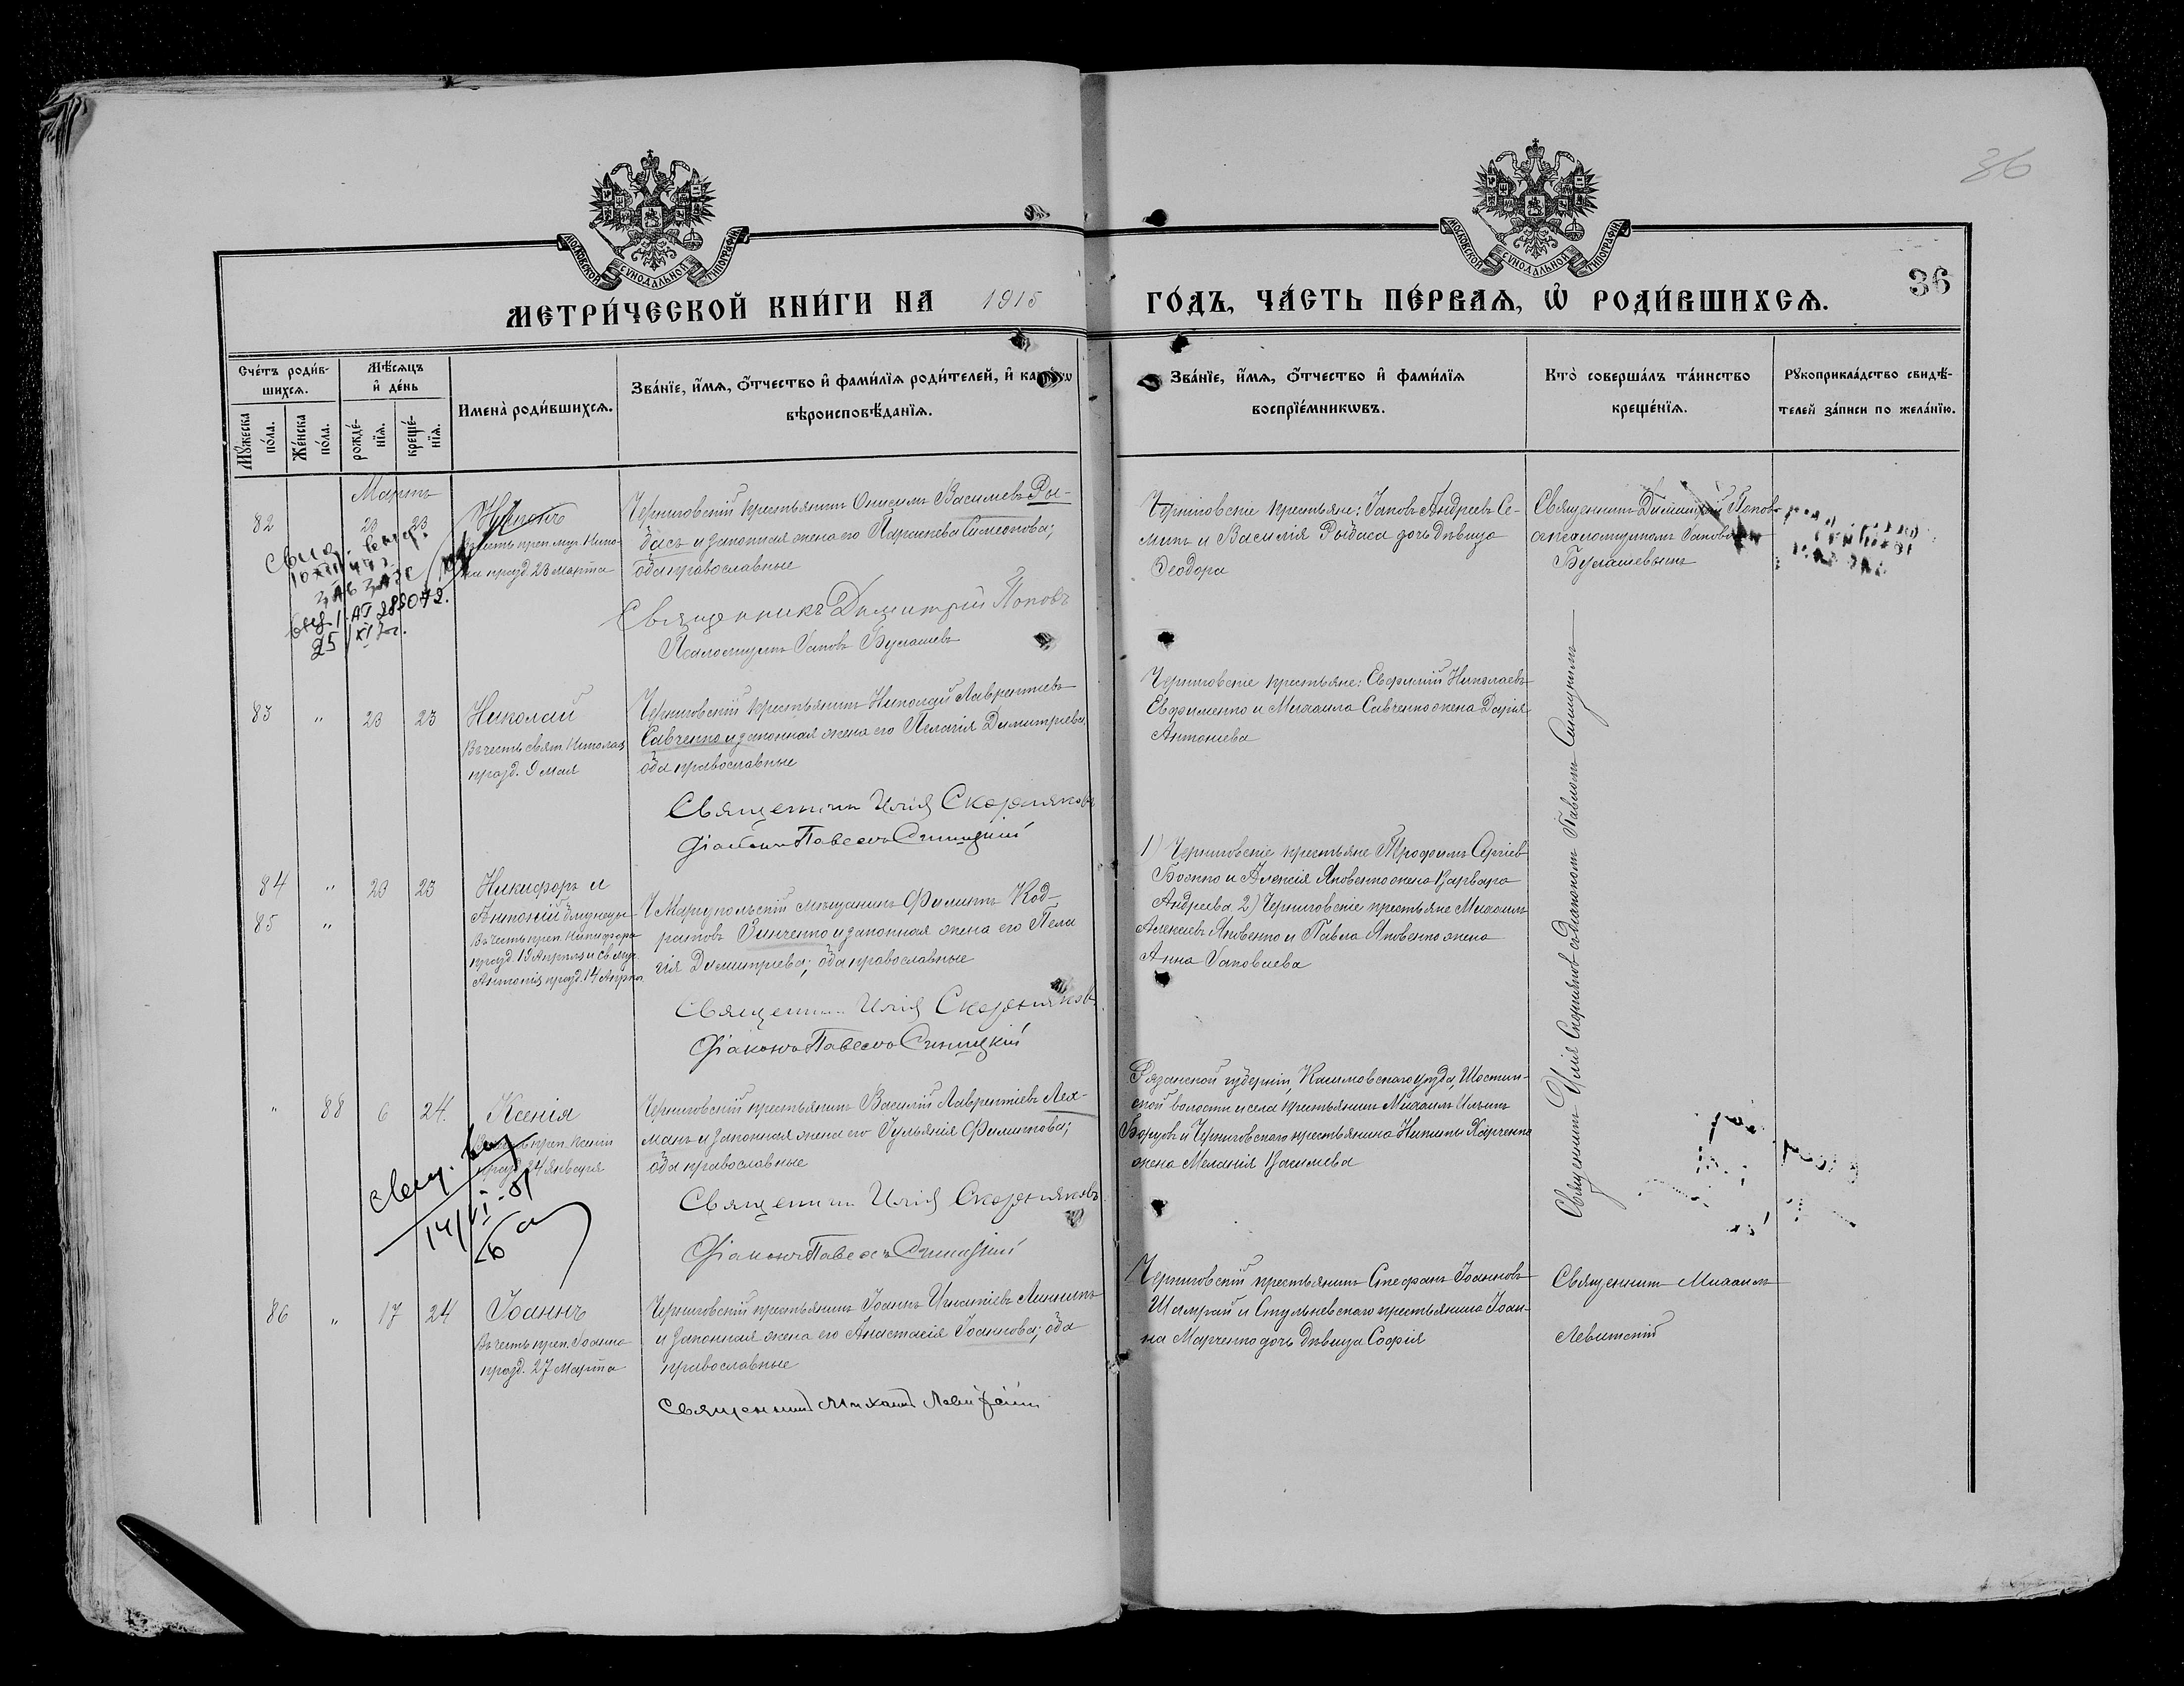 36
МОСКОВСКОЙ СУНОДАЛЬНОЙ ТИПОГРАФІИ
МОСКОВСКОЙ СУНОДАЛЬНОЙ ТИПОГРАФІИ
МЕТРИ́ЧЕСКОЙ КНИ́ГИ НА 1915 ГО́ДЪ, ЧА́СТЬ ПЕ́РВАѦ, Ѡ҆ РОДИ́ВШИХСѦ.
36
Сче́тъ роди́в-
шихсѧ.
Мꙋ́жеска по́ла.
Же́нска по́ла.
Мѣ́сѧцъ
и҆ де́нь
рожде́-
нїѧ.
креще́-
нїѧ.
Имена̀ роди́вшихсѧ.
Зва́нїе, и҆́мѧ, ѻ҆́тчество и҆ фами́лїѧ роди́телей, и҆
вѣроисповѣ́данїѧ.
Зва́нїе, и҆́мѧ, ѻ҆́тчество и҆ фами́лїѧ
воспрїе́мникѡвъ.
Кто̀ соверша́лъ та́инство
креще́нїѧ.
Рꙋкоприкла́дство свидѣ́-
телей за́писи по жела́нїю.
Мартъ
82 23 23
Никонъ
Въ честь преп. муч. Нико-
на празд. 23 марта
Черниговскій крестьянинъ Онисимъ Васильевъ Ры-
басъ и законная жена его Параскева Симеонова;
оба православные
Священникъ Димитрій Поповъ
Псаломщикъ Іаковъ Булашевъ
Черниговскіе крестьяне: Іаковъ Андреевъ Се-
минъ и Василія Рыбаса дочь дѣвица
Ѳеодора
Священникъ Димитрій Поповъ
съ псаломщикомъ Іаковомъ
Булашевымъ
25/XI
83 " 23 23
Николай
Въ честь свят. Николая
празд. 9 мая
Черниговскій крестьянинъ Николай Лаврентіевъ
Савченко и законная жена его Пелагія Димитріева,
оба православные
Священникъ Илія Скорняковъ
Діаконъ Павелъ Синицкій
Черниговскіе крестьяне: Евфимій Николаевъ
Евфименко и Михаила Савченко жена Дарія
Антоніева
Священникъ Илія Скорняковъ съ діакономъ Павломъ Синицкимъ
84 " 23 23
85 "
Никифоръ и
Антоній близнецы
Въ честь преп. Никифора
празд. 19 Апрѣля и св. муч.
Антонія празд. 14 Апрѣл.
Маріупольскій мѣщанинъ Филиппъ Код-
ратовъ Зинченко и законная жена его Пела
гія Димитріева; оба православные
Священникъ Илія Скорняковъ
Діаконъ Павелъ Синицкій
1) Черниговскіе крестьяне Трофимъ Сергіев
Божко и Алексія Яковенко жена Варвара
Андреева 2) Черниговскіе крестьяне Михаилъ
Алексіевъ Яковенко и Павла Яковенко жена
Анна Іаковлева
" 88 6 24.
Ксенія
Въ честь преп. Ксеніи
празд. 24 Января
Черниговскій крестьянинъ Василій Лаврентіевъ Лях-
манъ и законная жена его Іульянія Филиппова;
оба православные
Священникъ Илія Скорняковъ
Діаконъ Павелъ Синицкій
Рязанской губерніи, Касимовскаго уѣзда,
ской волости и села крестьянинъ Михаилъ Ильинъ
Борзовъ и Черниговскаго крестьянина Никиты Харченко
жена Меланія Васильева
86 " 17 24
Іоаннъ
Въ честь преп. Іоанна
празд. 27 Марта
Черниговскій крестьянинъ Іоаннъ Игнатіевъ Линникъ
и законная жена его Анастасія Іоаннова; оба
православные
Священникъ Михаилъ Левитскій
Черниговскій крестьянинъ Стефанъ Іоанновъ
Шамрай и Стульневскаго крестьянина Іоан-
на Марченко дочь дѣвица Софія
Священникъ Михаилъ
Левитскій